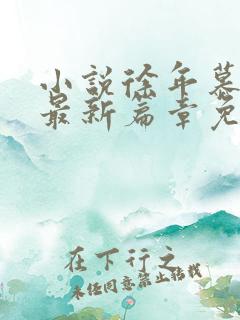 小说徐年慕
最新篇章免
在下行之
未经同意禁止转载